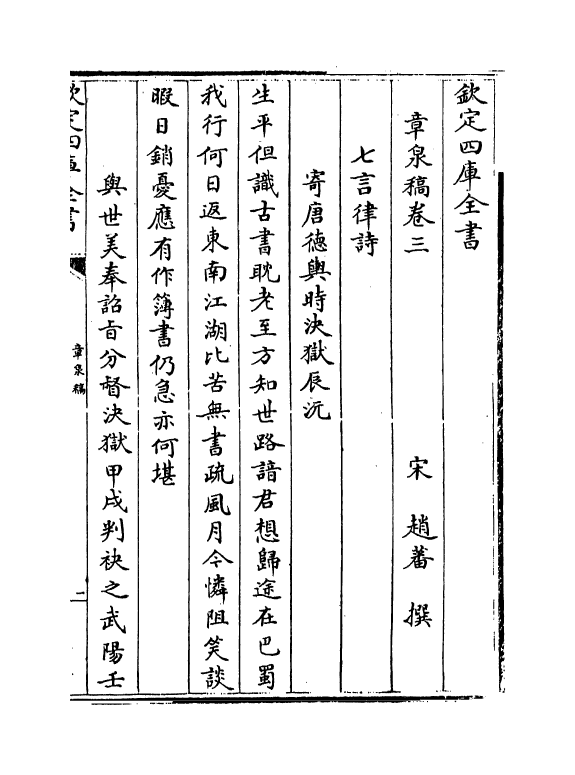 欽定四庫全書
章泉稿卷三
宋 趙蕃 撰
七言律詩
寄唐德輿時決獄辰沅
生平但識古書耽老至方知世路諳君想歸途在巴蜀
我行何日返東南江湖比苦無書疏風月今憐阻笑談
暇日銷憂應有作簿書仍急亦何堪
與世美奉詔旨分督決獄甲戌判袂之武陽壬
欽定四庫全書
章泉稿
二